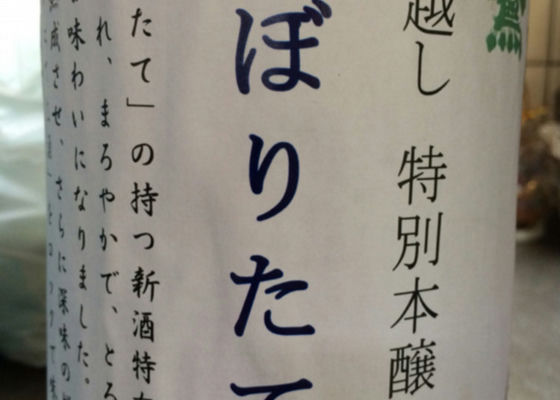 越し 特別本醸
ぼりたて
たて」の持つ新酒特有
れ、まろやかで、とろ
味わいになりました。
成させ、さらに深味の